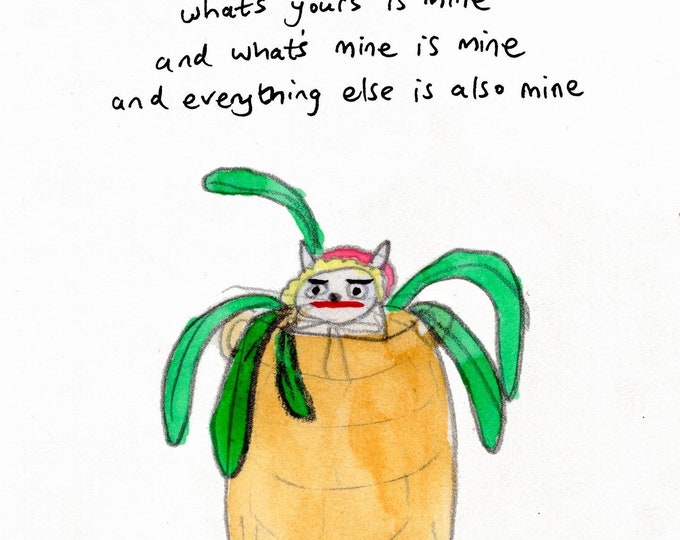 what's yours is mine
and what's mine is mine
and everything else is also mine